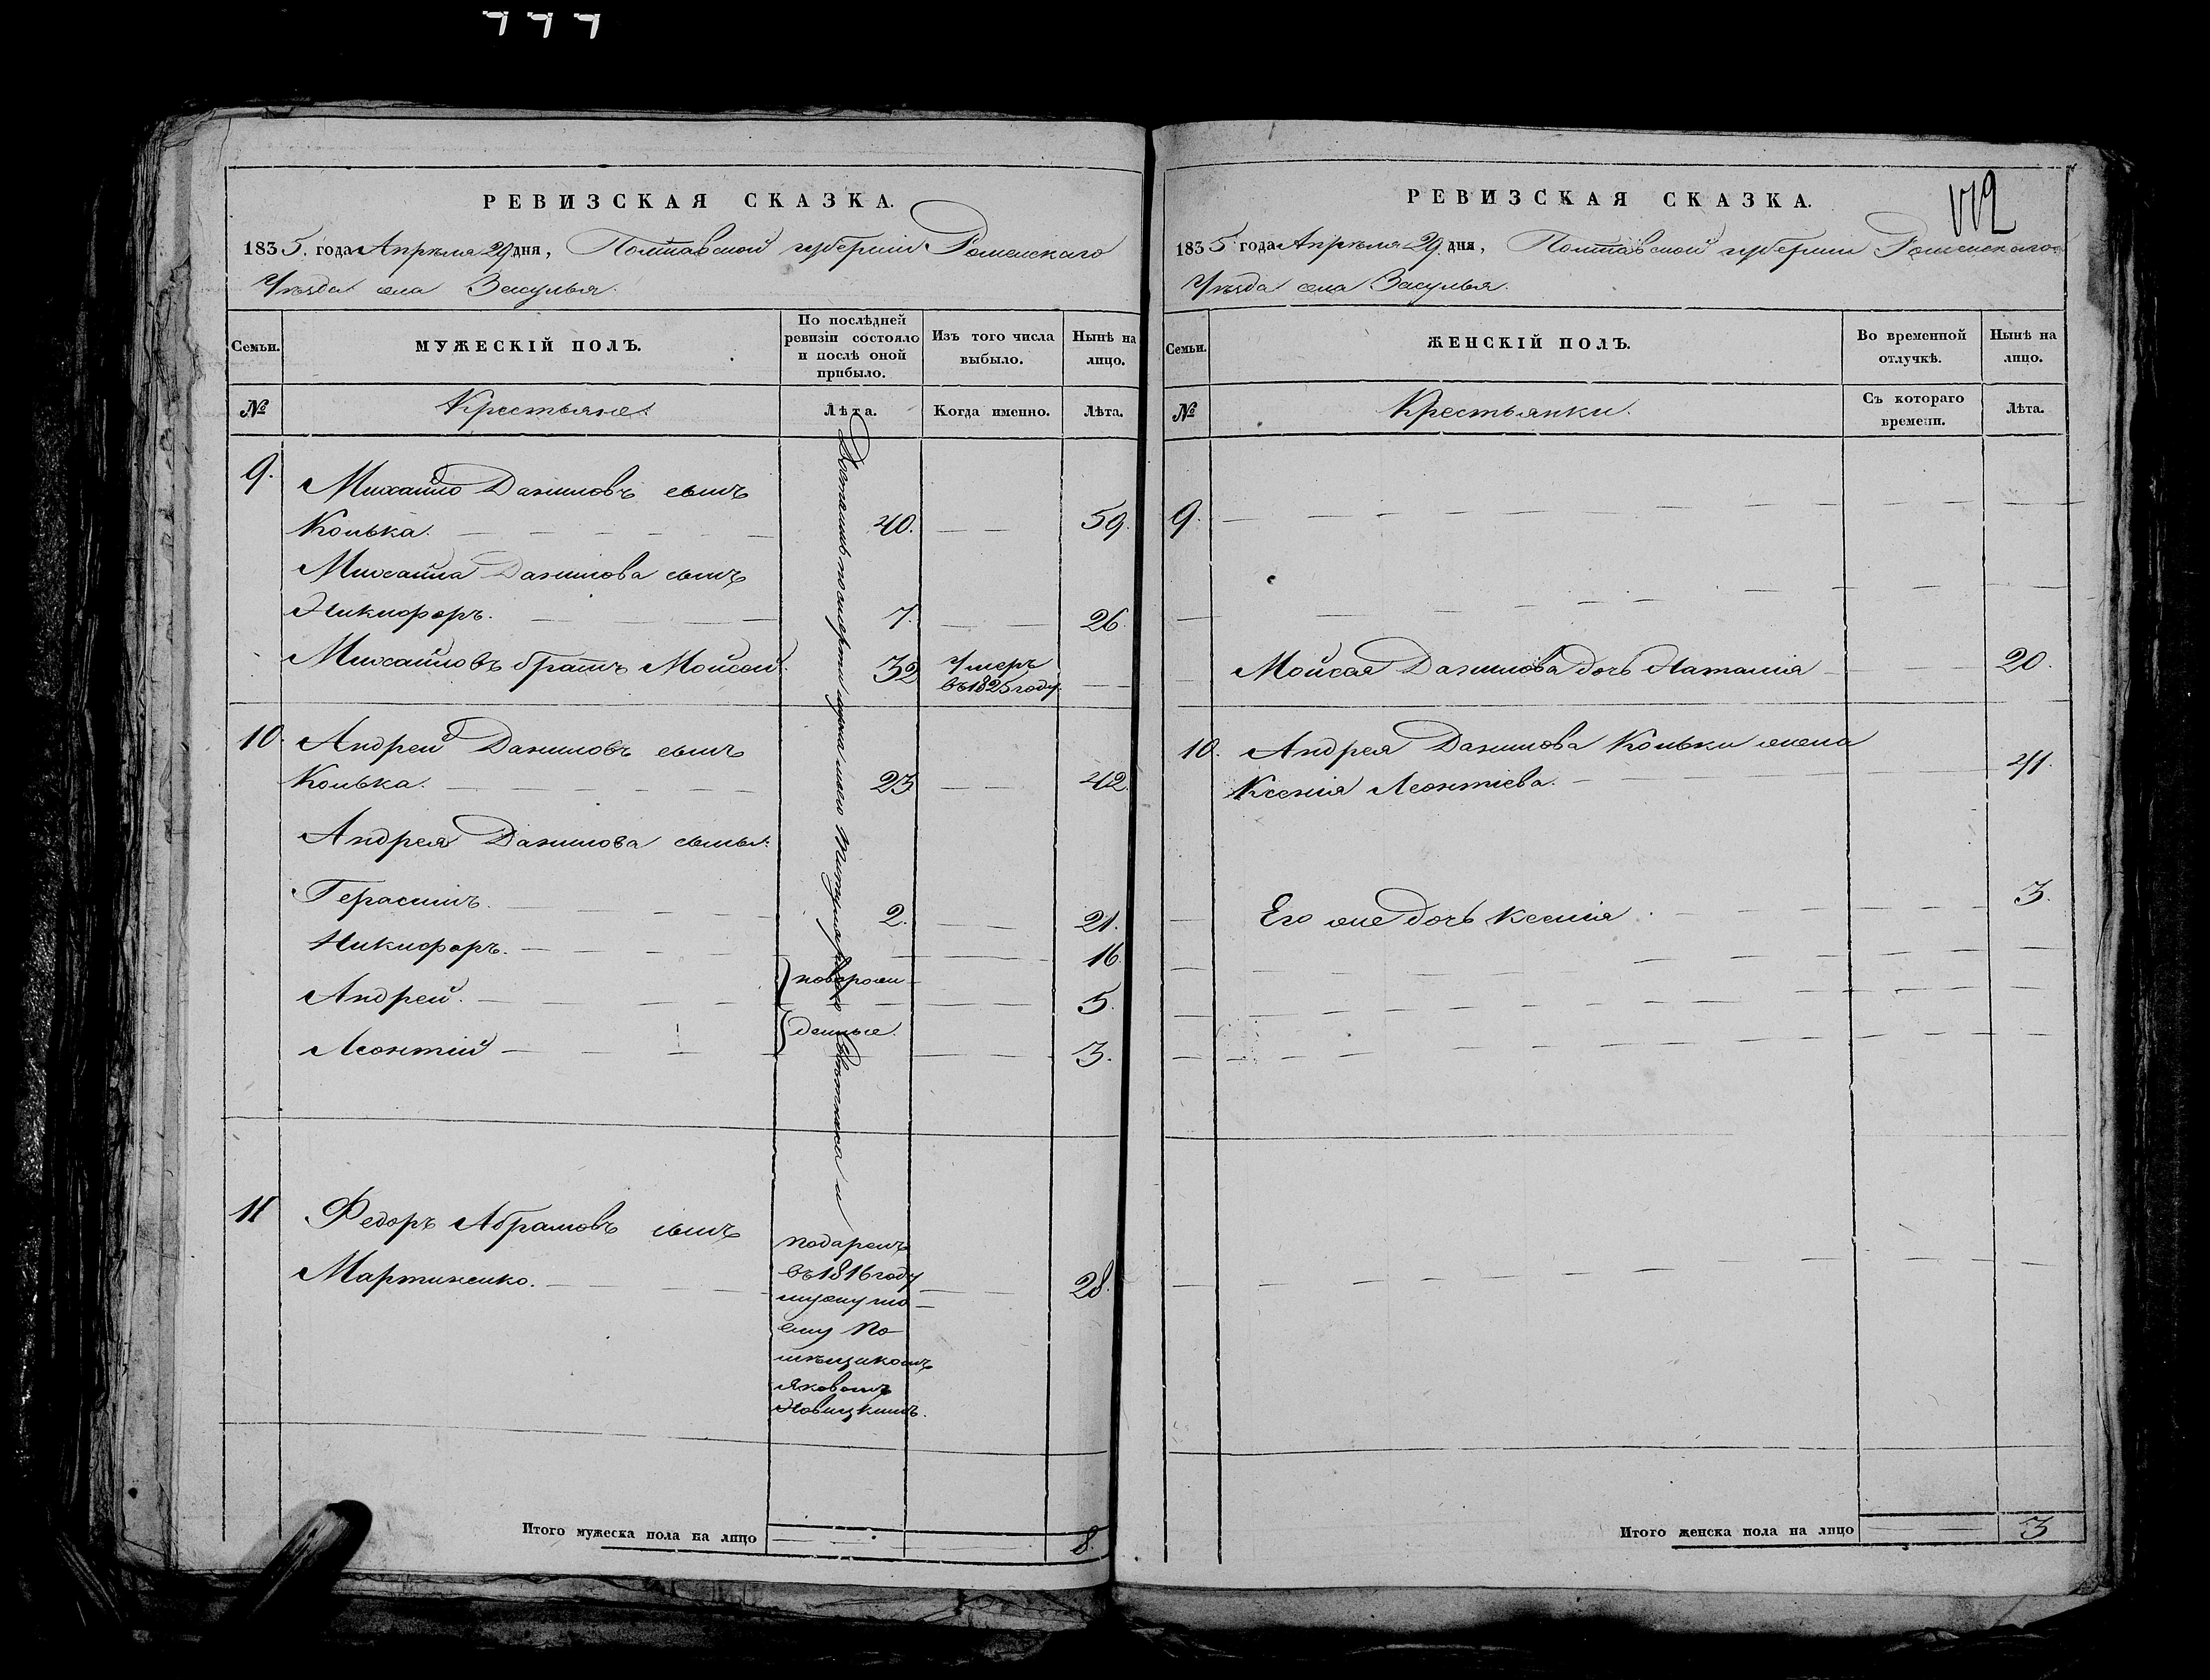 777
РЕВИЗСКАЯ СКАЗКА.
1835. года Апрѣля 29 дня, Полтавской губернии Роменскаго
Уѣзда села Засулья.
Семьи.
МУЖЕСКІЙ ПОЛЪ.
По послѣдней ревизіи состояло и послѣ оной прибыло.
Изъ того числа выбыло.
Нынѣ на лицо.
№
Крестьяне
Лѣта.
Когда именно.
Лѣта.
Досталось по смерти мужа моего Титулярнаго Совѣтника и
9. Михайло Даниловъ сынъ
Колька. 40. 59.
Михайла Данилова сынъ
Никифоръ. 7. 26.
Михайловъ братъ Мойсей. 32 Умеръ
въ 1825 году.
10. Андрей Даниловъ сынъ
Колька. 23 42.
Андрея Данилова сыны:
Герасимъ. 2. 21.
Никифоръ. 16.
новорож-
Андрей. 5.
денные.
Леонтій 3.
11 Федоръ Абрамовъ сынъ
Мартиненко. 28.
подаренъ
въ 1816 году
мужу мо-
ему по-
мѣщикомъ
Яковомъ
Новицкимъ.
Итого мужеска пола на лицо 8.
РЕВИЗСКАЯ СКАЗКА.
1835 года Апрѣля 29. дня, Полтавской губернии Роменскаго
Уѣзда села Засулья.
Семьи.
ЖЕНСКІЙ ПОЛЪ.
Во временной отлучкѣ.
Нынѣ на лицо.
№
Крестьянки.
Съ котораго времени.
Лѣта.
9.
Мойсея Данилова дочь Наталия 20.
10. Андрея Данилова Кольки жена
Ксения Леонтіева. 41.
Его же дочь Ксения 3.
Итого женска пола на лицо 3